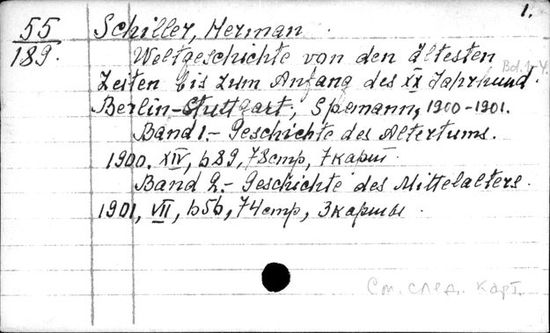 1.
55
189.
Schiller, Herman.
Weltgeschichte von den ältesten
Bd. 1-4.
Zeiten bis zum Anfang des XX Jahrhund.
Berlin-Stuttgart, Spemann, 1900-1901.
Band 1.- Geschichte des Altertums.
1900. XIV, 689, 78 стр, 7 карт.
Band 2.- Geschichte des Mittelalters.
1901, VII, 656, 74 стр, 3 карты.
См. след. карт.